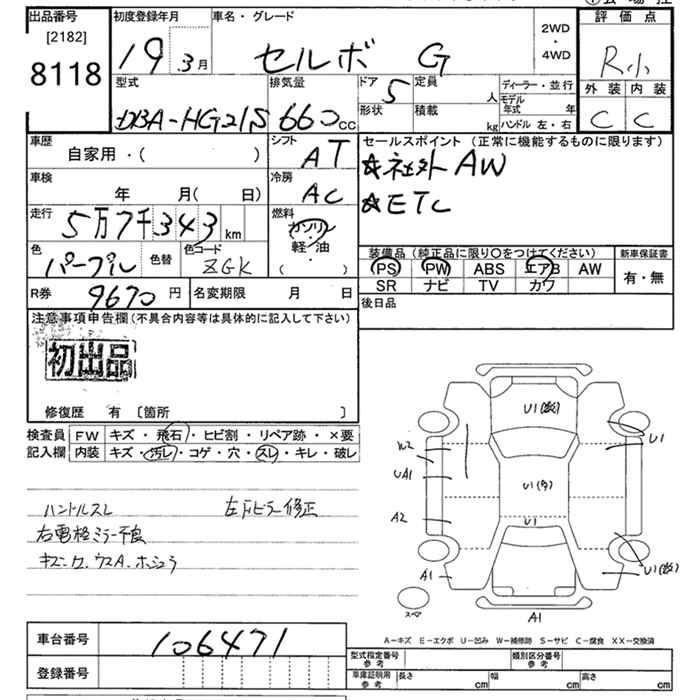 出品番号 初度登録年月 車名・グレード 評価点
[2182] 19 3月 セルボ G 2WD・4WD R小
8118
型式 排気量 ドア 5 定員 人 ディーラー・並行 外装 内装
DBA-HG21S 660cc 形状 積載 kg モデル年式 年 C C
ハンドル左・右
車歴 シフト セールスポイント(正常に機能するものに限ります)
自家用・( ) AT ☆社外AW
車検 冷房 ☆ETC
年 月( 日) AC
走行 燃料
5万7千343km ガソリン
軽・油
( )
色 色替 色コード 装備品(純正品に限り○をつけてください) 新車保証書
パープル ZGK PS PW ABS エアB AW 有・無
SR ナビ TV カワ
R券 9670円 名変期限 月 日 後日品
注意事項申告欄(不具合内容等は具体的に記入して下さい)
初出品
修復歴 有 [箇所 ]
検査員 FW キズ・飛石・ヒビ割・リペア跡・×要
記入欄 内装 キズ・汚レ・コゲ・穴・スレ・キレ・破レ
ハンドルスレ 左 ピラー修正
右電格ミラー不良
U1
U1
W2
UA1
U1
A2
U1
A1
スペア
A1
A−キズ E−エクボ U−凹み W−補修跡 S−サビ C−腐食 XX−交換済
車台番号 106471
型式指定番号 参考 類別区分番号 参考
登録番号 車庫証明用 参考 長さ cm 幅 cm 高さ cm